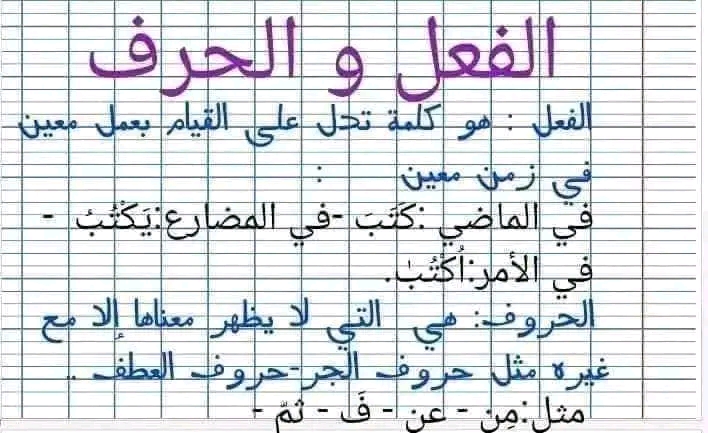 الفعل و الحرف
الفعل : هو كلمة تدل على القيام بعمل معين
في زمن معين :
في الماضي :كَتَبَ -في المضارع:يَكْتُبُ -
في الأمر:اُكْتُبْ.
الحروف: هي التي لا يظهر معناها إلا مع
غيره مثل حروف الجر-حروف العطف ..
مثل:مِن - عن - فَ - ثمّ -